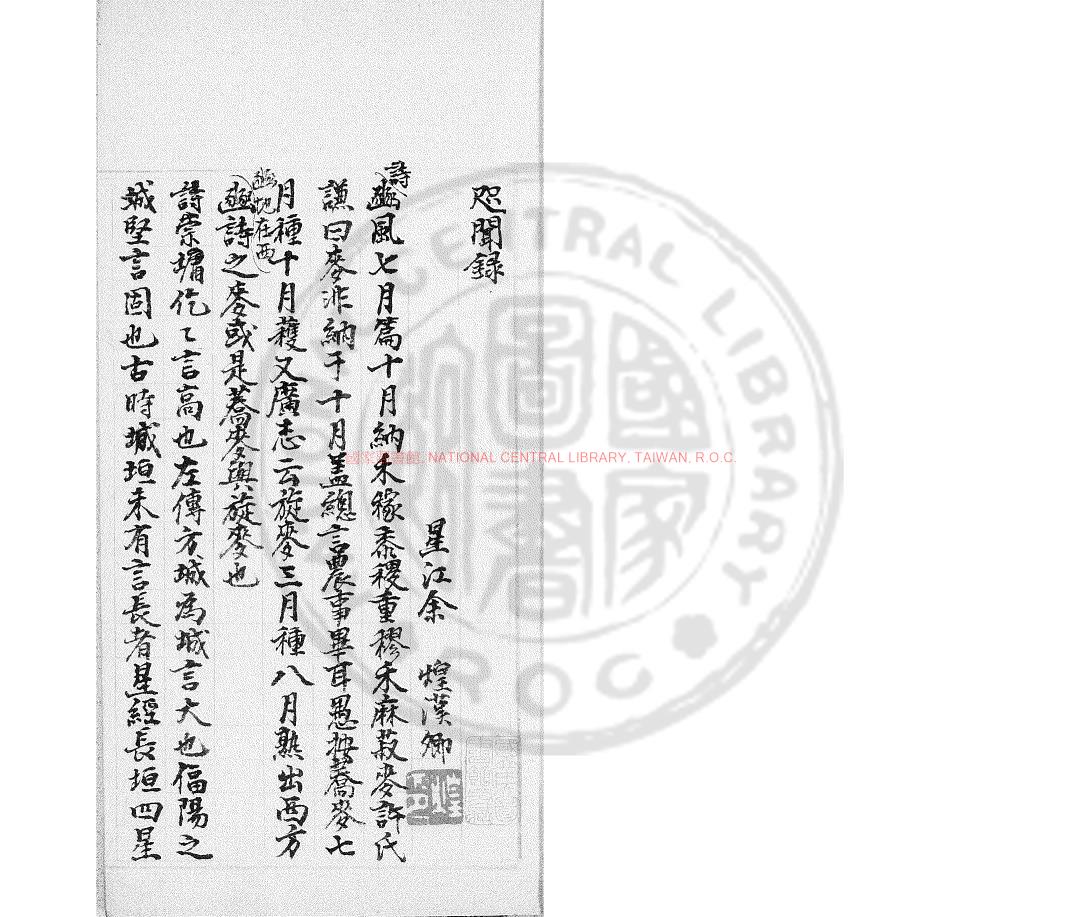 咫聞録
星江余 煌漢卿
詩豳風七月篇十月納禾稼黍稷重穋禾麻菽麥許氏
謙曰麥非納于十月盖總言農事畢耳愚按蕎麥七
月種十月穫又廣志云旋麥三月種八月熟出西方
豳地在西
豳詩之麥或是蕎麥與旋麥也
詩崇墉仡〻言高也左傳方城為城言大也偪陽之
城堅言固也古時城垣未有言長者星經長垣四星
國家圖書館, NATIONAL CENTRAL LIBRARY, TAIWAN, R.O.C.
NATIONAL CENTRAL LIBRARY
ROC
國家圖書